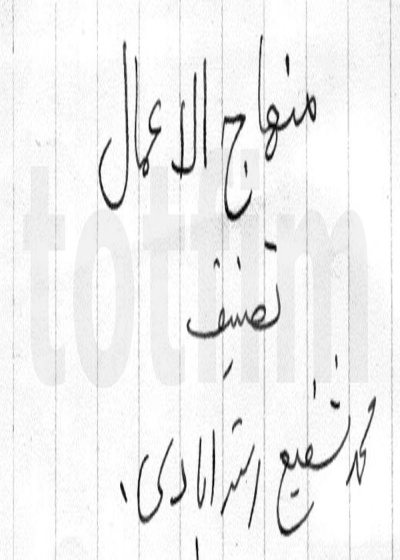 منهاج الاعمال
تصنیف
محمد شفیع استرابادی.
totfim